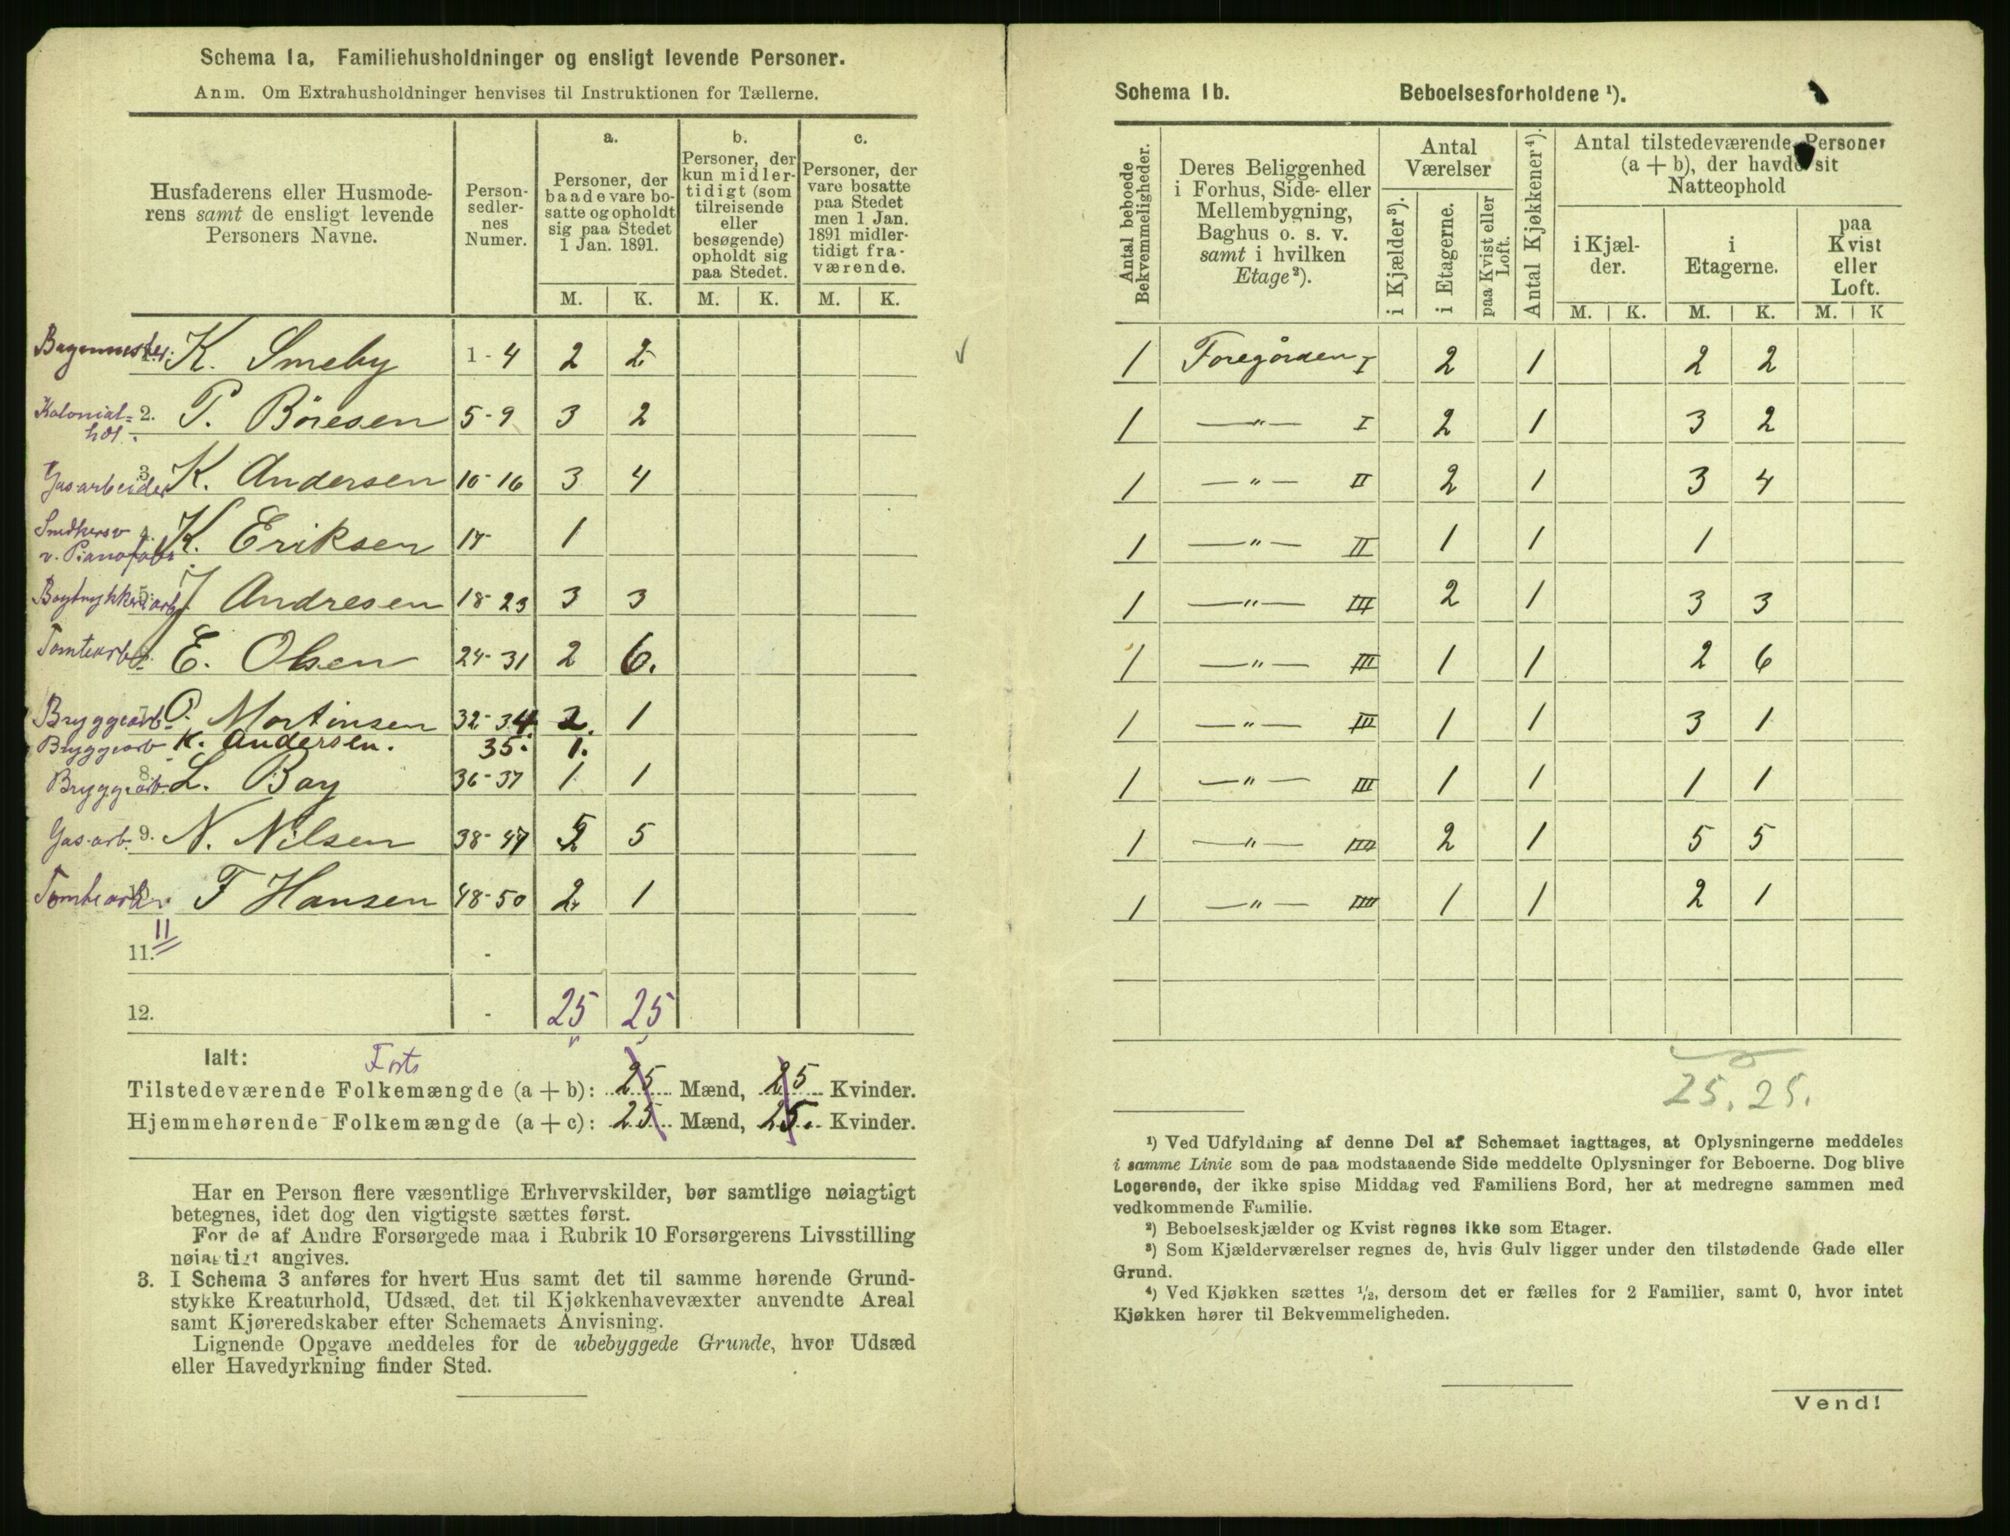 Schema 1a. Familiehusholdninger og ensligt levende Personer.
Anm. Om Extrahusholdninger henvises til Instruktionen for Tællerne.
Husfaderens eller Husmode-
rens samt de ensligt levende
Personers Navne.
Person-
sedler-
nes
Numer.
a.
Personer, der
baade vare bo-
satte og opholdt
sig paa Stedet
1 Jan. 1891.
b.
Personer, der
kun midler-
tidigt (som
tilreisende
eller
besøgende)
opholdt sig
paa Stedet.
c.
Personer, der
vare bosatte
paa Stedet
men 1 Jan.
1891 midler-
tidigt fra-
værende.
M. K. M. K. M. K.
K. Smeby 1-4 2 2
Kolonial-
hdl. 2. P. Böresen 5-9 3 2
Gasarbeider 3. K. Andersen 10-16 3 4
4. K. Eriksen 17 1
v. Pianofabr
5. J. Andresen 18-23 3 3
Tomtearb. E. Olsen 24-31 2 6.
Bryggearb. O. Mortinsen 32-34. 2. 1
Bryggearb K. Andersen. 35. 1.
Bryggearb. 8. L. Bay 36-37 1 1
Gas.arb. 9. N. Nilsen 38-47 5 5
Tomtearb. F Hansen 48-50 2 1
11
11. -
12. - 25 25
Ialt: Forts
Tilstedeværende Folkemængde (a + b): 25 Mænd, 25 Kvinder.
Hjemmehørende Folkemængde (a + c): 25 Mænd, 25. Kvinder.
Har en Person flere væsentlige Erhvervskilder, bør samtlige nøiagtigt
betegnes, idet dog den vigtigste sættes først.
For de af Andre Forsørgede maa i Rubrik 10 Forsørgerens Livsstilling
nøiagtigt angives.
3. I Schema 3 anføres for hvert Hus samt det til samme hørende Grund-
stykke Kreaturhold, Udsæd, det til Kjøkkenhavevæxter anvendte Areal
samt Kjøreredskaber efter Schemaets Anvisning.
Lignende Opgave meddeles for de ubebyggede Grunde, hvor Udsæd
eller Havedyrkning finder Sted.
Schema 1b. Beboelsesforholdene ¹).
Antal beboede
Bekvemmeligheder.
Deres Beliggenhed
i Forhus, Side- eller
Mellembygning,
Baghus o. s. v.
samt i hvilken
Etage²).
Antal
Værelser
i Kjælder³).
i Etagerne.
paa Kvist eller
Loft.
Antal Kjøkkener⁴).
Antal tilstedeværende Personer
(a + b), der havde sit
Natteophold
i Kjæl-
der.
i
Etagerne.
paa
Kvist
eller
Loft.
M. K. M. K. M. K
1 Foregården I 2 1 2 2
1 —„— I 2 1 3 2
1 —„— II 2 1 3 4
1 —„— II 1 1 1
1 —„— III 2 1 3 3
1 —„— III 1 1 2 6
1 —„— III 1 1 3 1
1 —„— III 1 1 1 1
1 —„— IIII 2 1 5 5
1 —„— IIII 1 1 2 1
25. 25.
¹) Ved Udfyldning af denne Del af Schemaet iagttages, at Oplysningerne meddeles
i samme Linie som de paa modstaaende Side meddelte Oplysninger for Beboerne. Dog blive
Logerende, der ikke spise Middag ved Familiens Bord, her at medregne sammen med
vedkommende Familie.
²) Beboelseskjælder og Kvist regnes ikke som Etager.
³) Som Kjælderværelser regnes de, hvis Gulv ligger under den tilstødende Gade eller
Grund.
⁴) Ved Kjøkken sættes ½, dersom det er fælles for 2 Familier, samt 0, hvor intet
Kjøkken hører til Bekvemmeligheden.
Vend!